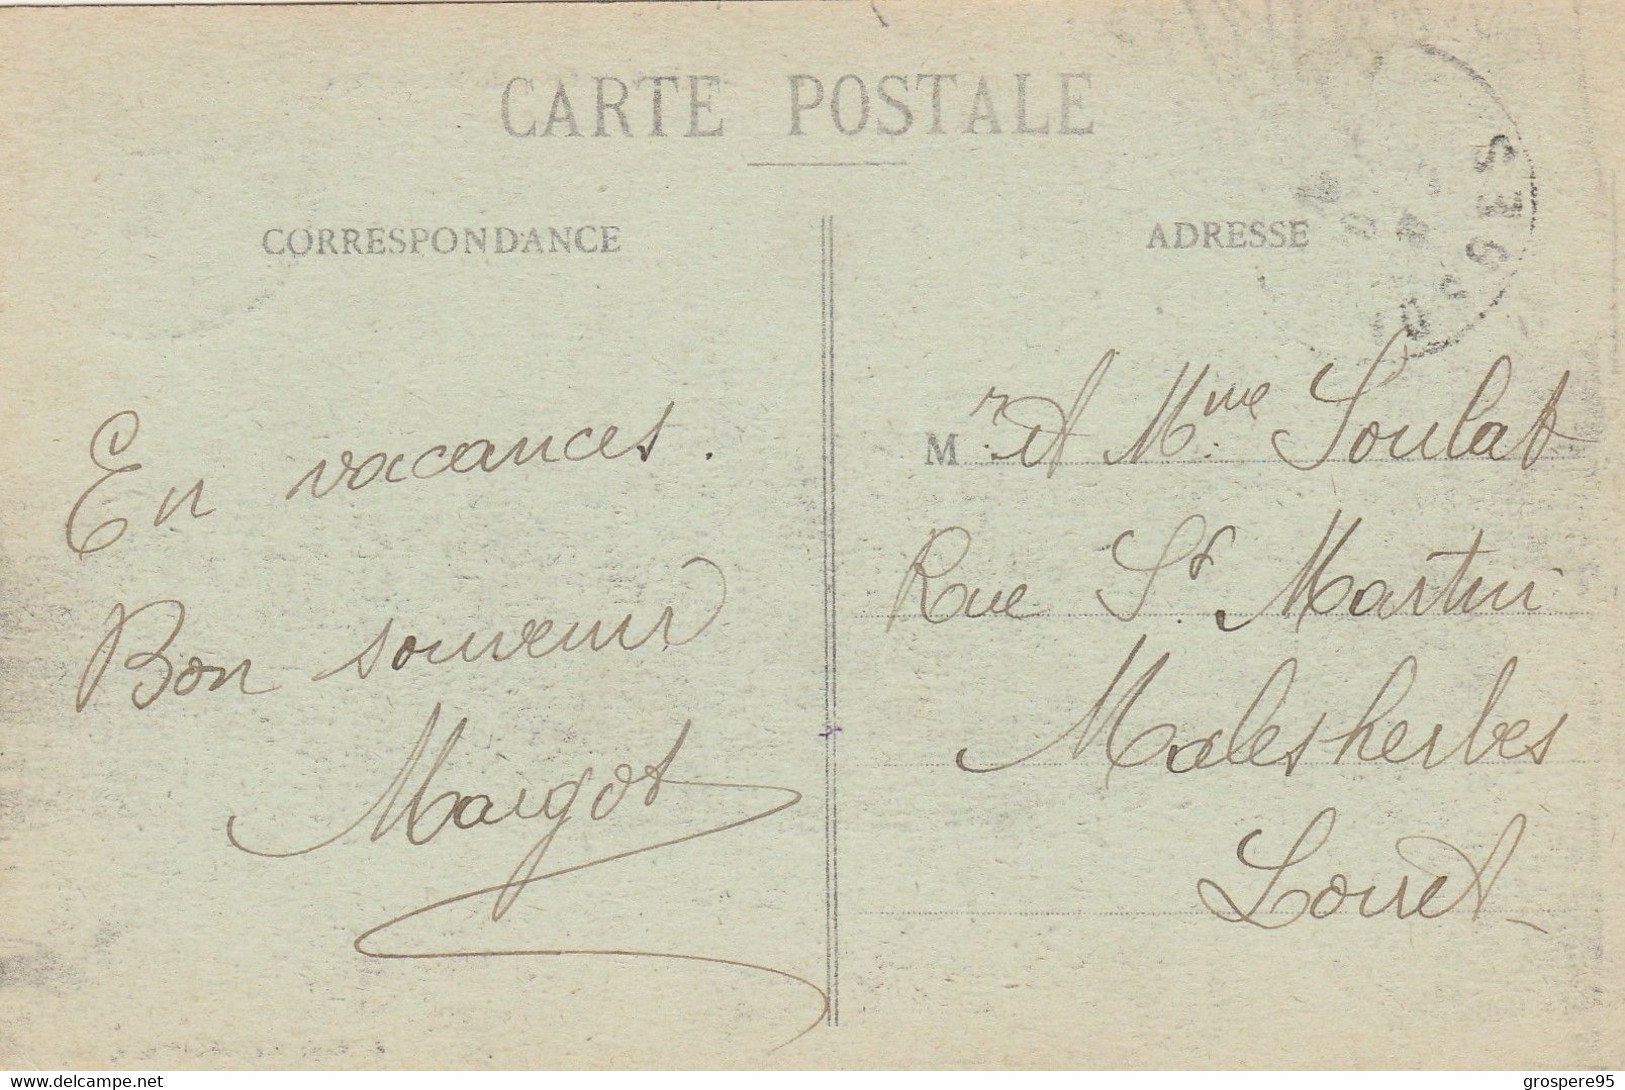 CARTE POSTALE
CORRESPONDANCE
ADRESSE
En vacances.
Bon souvenir
Margot
Mr et Mme Soulat
Rue St Martin
Malesherbes
Loiret
www.delcampe.net
grospere95